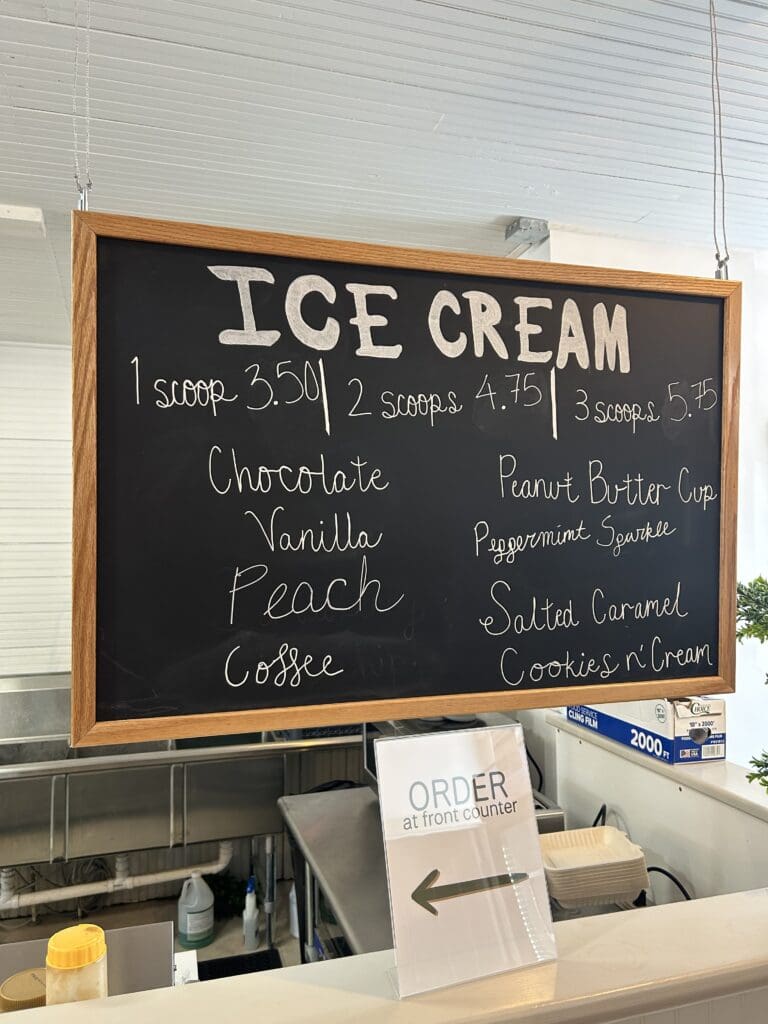 ICE CREAM
1 scoop 3.50 | 2 scoops 4.75 | 3 scoops 5.75
Chocolate
Vanilla
Peach
Coffee
Peanut Butter Cup
Peppermint Sparkle
Salted Caramel
Cookies n' Cream
CLING FILM
2000 FT
CHOICE
18" x 2000'
ORDER
at front counter